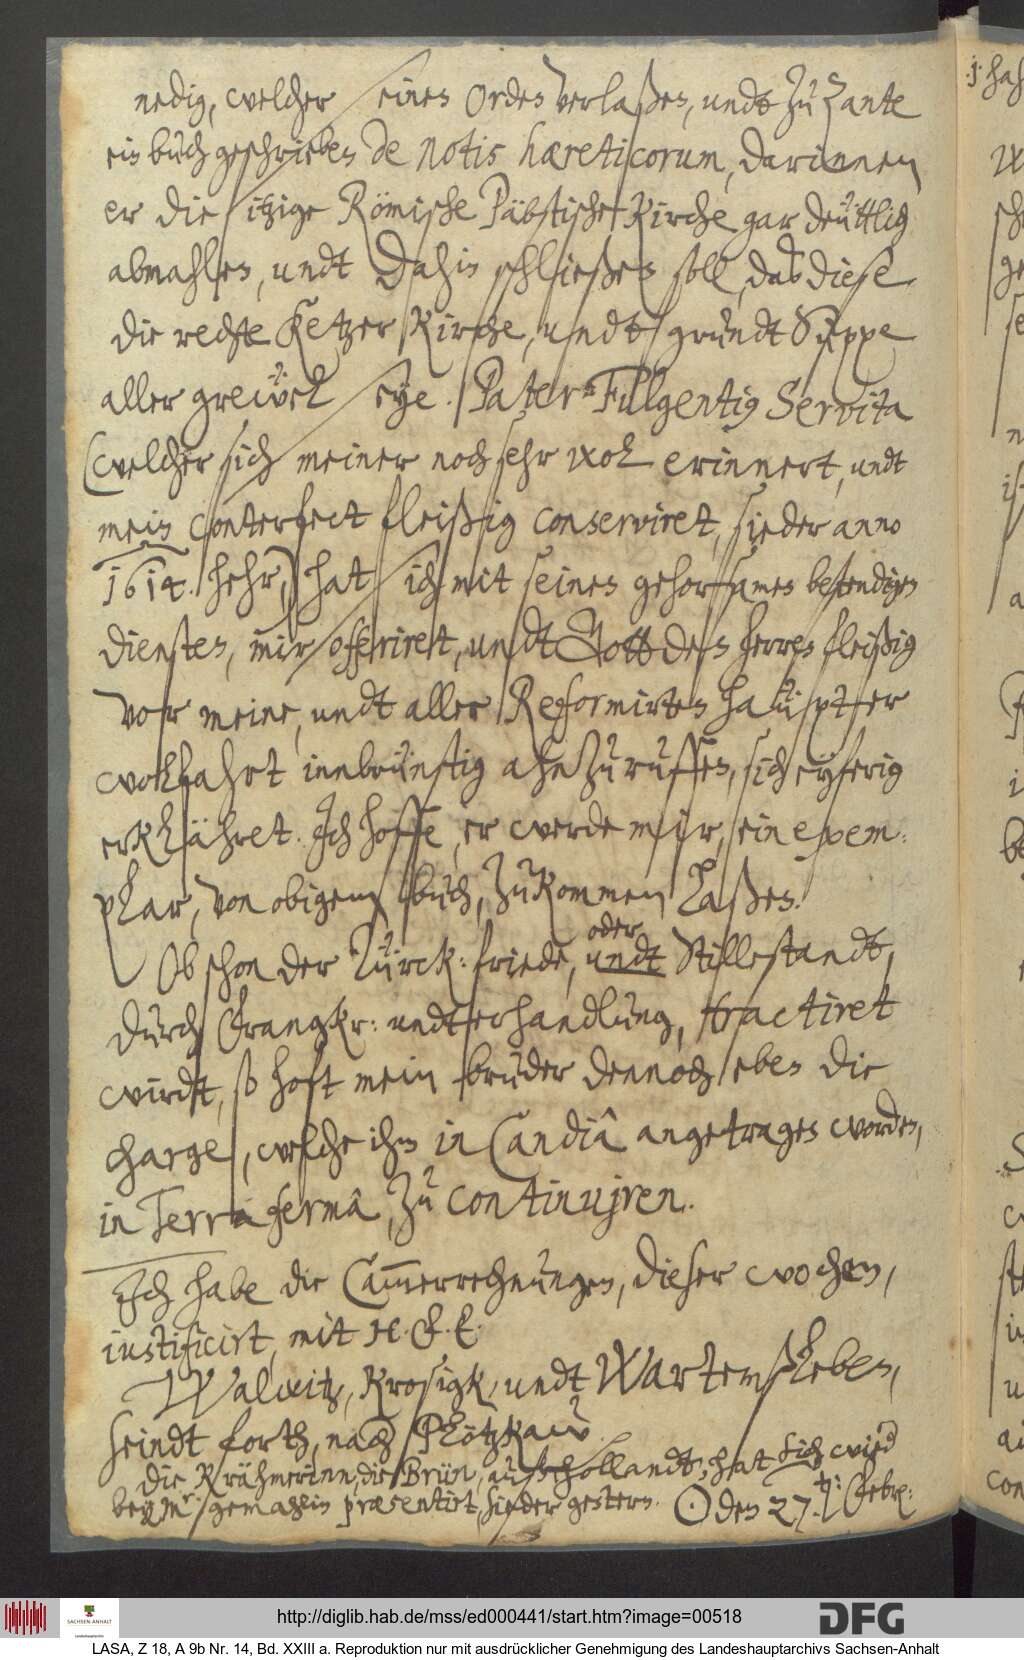 nedig, welcher seinen Orden verlaßen, undt zu Zante
ein buch geschrieben de notis hæreticorum, darinnen
er die itzige Römische Päbstische Kirche gar deüttlich
abmahlen, undt dahin schließen soll, daß diese
die rechte Ketzer Kirche, undt grundt Suppe
aller greüel seye. Pater Fulgentig Servita
(welcher sich meiner noch sehr wol erinnert, undt
mein Conterfect fleißig conserviret, sieder anno
1614. hehr,) hat sich mit seinen gehorsamen bestendigen
diensten, mir offeriret, undt Gott den herren fleißig
vor meine, undt aller Reformirten haüpter
wolfahrt innbrünstig ahnzuruffen, sich eyferig
erklähret. Ich hoffe, er werde mir, ein exem:
plar, von obigem buch, zukommen laßen.
Ob schon der Türck: friede, undt oder Stillestandt,
durch Frangkr: undterhandlung, tractiret
wirdt, so hoft mein bruder dennoch eben die
charge, welche ihm in Candiâ angetragen worden,
in Terra fermâ, zu continujren.
Ich habe die Cammerrechnungen, dieser wochen,
justificirt, mit H. E. E.
Walwitz, Krosigk, undt Wartemßleben,
seindt forth, nach Plötzkaw.
Die Krähmerinn, die Brün, auß hollandt, hat sich wied
bey Mr: gemahlin præsentirt, sieder gestern. ☉ den 27. Febr:
j. hab
http://diglib.hab.de/mss/ed000441/start.htm?image=00518
DFG
SACHSEN-ANHALT
Landeshauptarchiv
LASA, Z 18, A 9b Nr. 14, Bd. XXIII a. Reproduktion nur mit ausdrücklicher Genehmigung des Landeshauptarchivs Sachsen-Anhalt